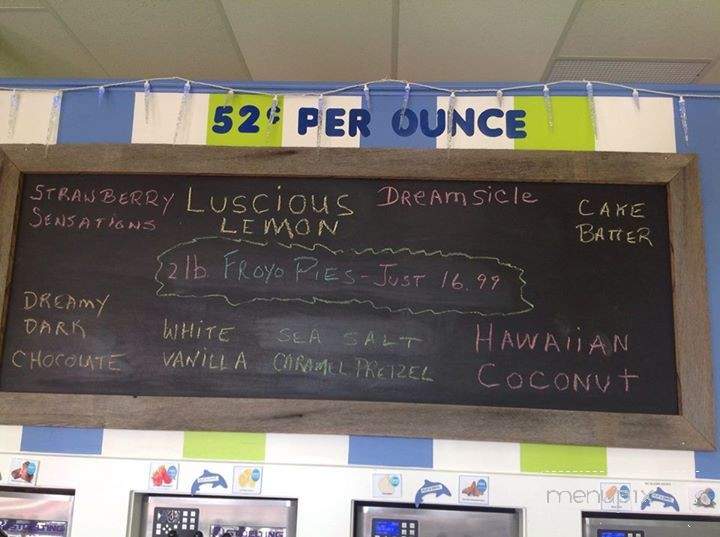 52¢ PER OUNCE
STRAWBERRY
SENSATIONS
LUSCIOUS
LEMON
DREAMSICLE
CAKE
BATTER
2lb FROYO PIES - JUST 16.99
DREAMY
DARK
CHOCOLATE
WHITE
VANILLA
SEA SALT
CARAMEL PRETZEL
HAWAIIAN
COCONUT
menupix